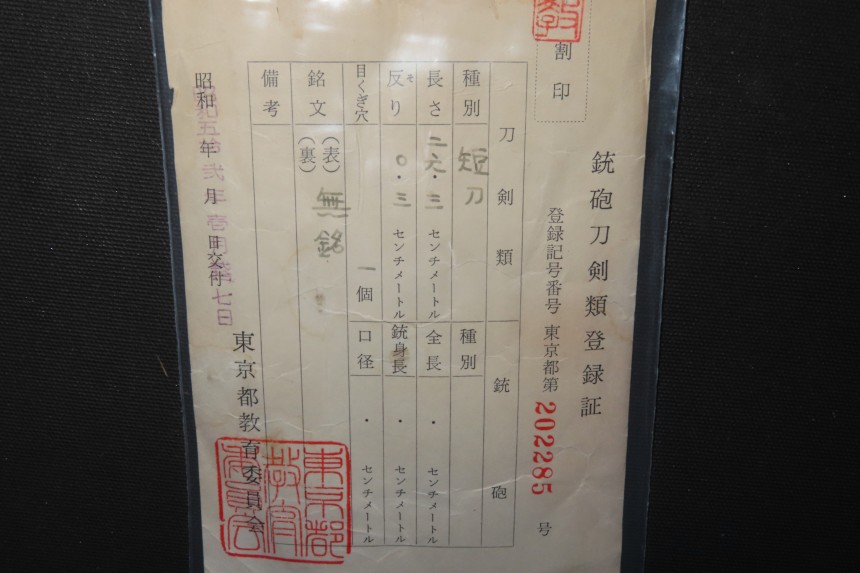 銃砲刀剣類登録証
割印
登録記号番号 東京都第202285号
刀剣類 銃砲
種別 短刀 種別
長さ 二六・三センチメートル 全長 ・ センチメートル
反り 〇・三センチメートル 銃身長 ・ センチメートル
そ
目くぎ穴 一個 口径 ・ センチメートル
銘文 (表) 無銘
(裏)
備考
昭和 年 月 日交付
昭和五拾弐年壱月 七日
東京都教育委員会
東京都
教育
委員会